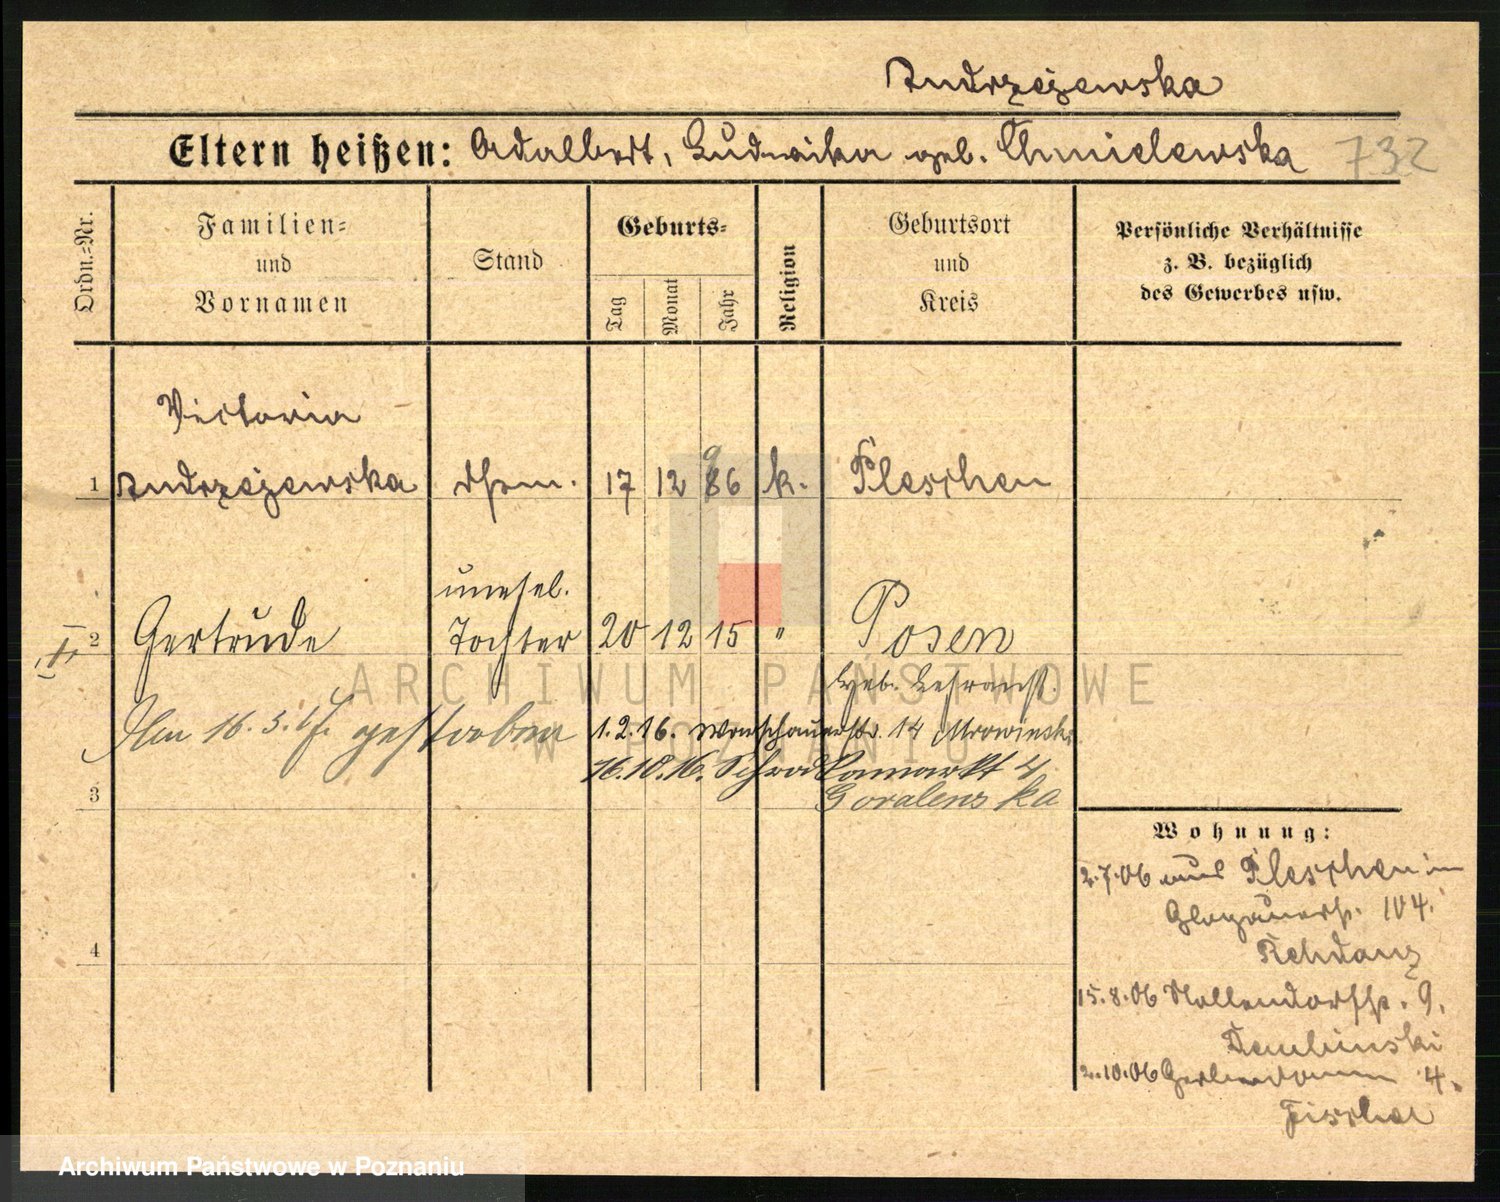 Andrzejewska
Eltern heißen: Adalbert, Ludwika geb. Chmielewska 732
Ordn.=Nr.
Familien=
und
Vornamen
Stand
Geburts=
Tag
Monat
Jahr
Religion
Geburtsort
und
Kreis
Persönliche Verhältnisse
z. B. bezüglich
des Gewerbes usw.
Victoria
1 Andrzejewska 17 12 86 k. Pleschen
9
unehel.
2 Gertrude Tochter 20 12 15 " Posen
Heb. Lehranst.
Am 16. 5. gestorben
1.2.16. Warschauerstr. 14 Mrowinska
16.10.16. Schrodkamarkt 4
3 Goralenska
4
Wohnung:
2.7.06 aus Pleschen in
Glogauerstr. 104.
Rehdanz
15.8.06 Nollendorfstr. 9.
Dembinski
2.10.06 Gerberdamm 4.
Fischer
ARCHIWUM PAŃSTWOWE
W POZNANIU
Archiwum Państwowe w Poznaniu